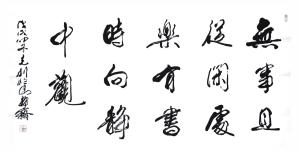 無事且
從閑處
樂有書
時向靜
中觀
戊戌仲冬